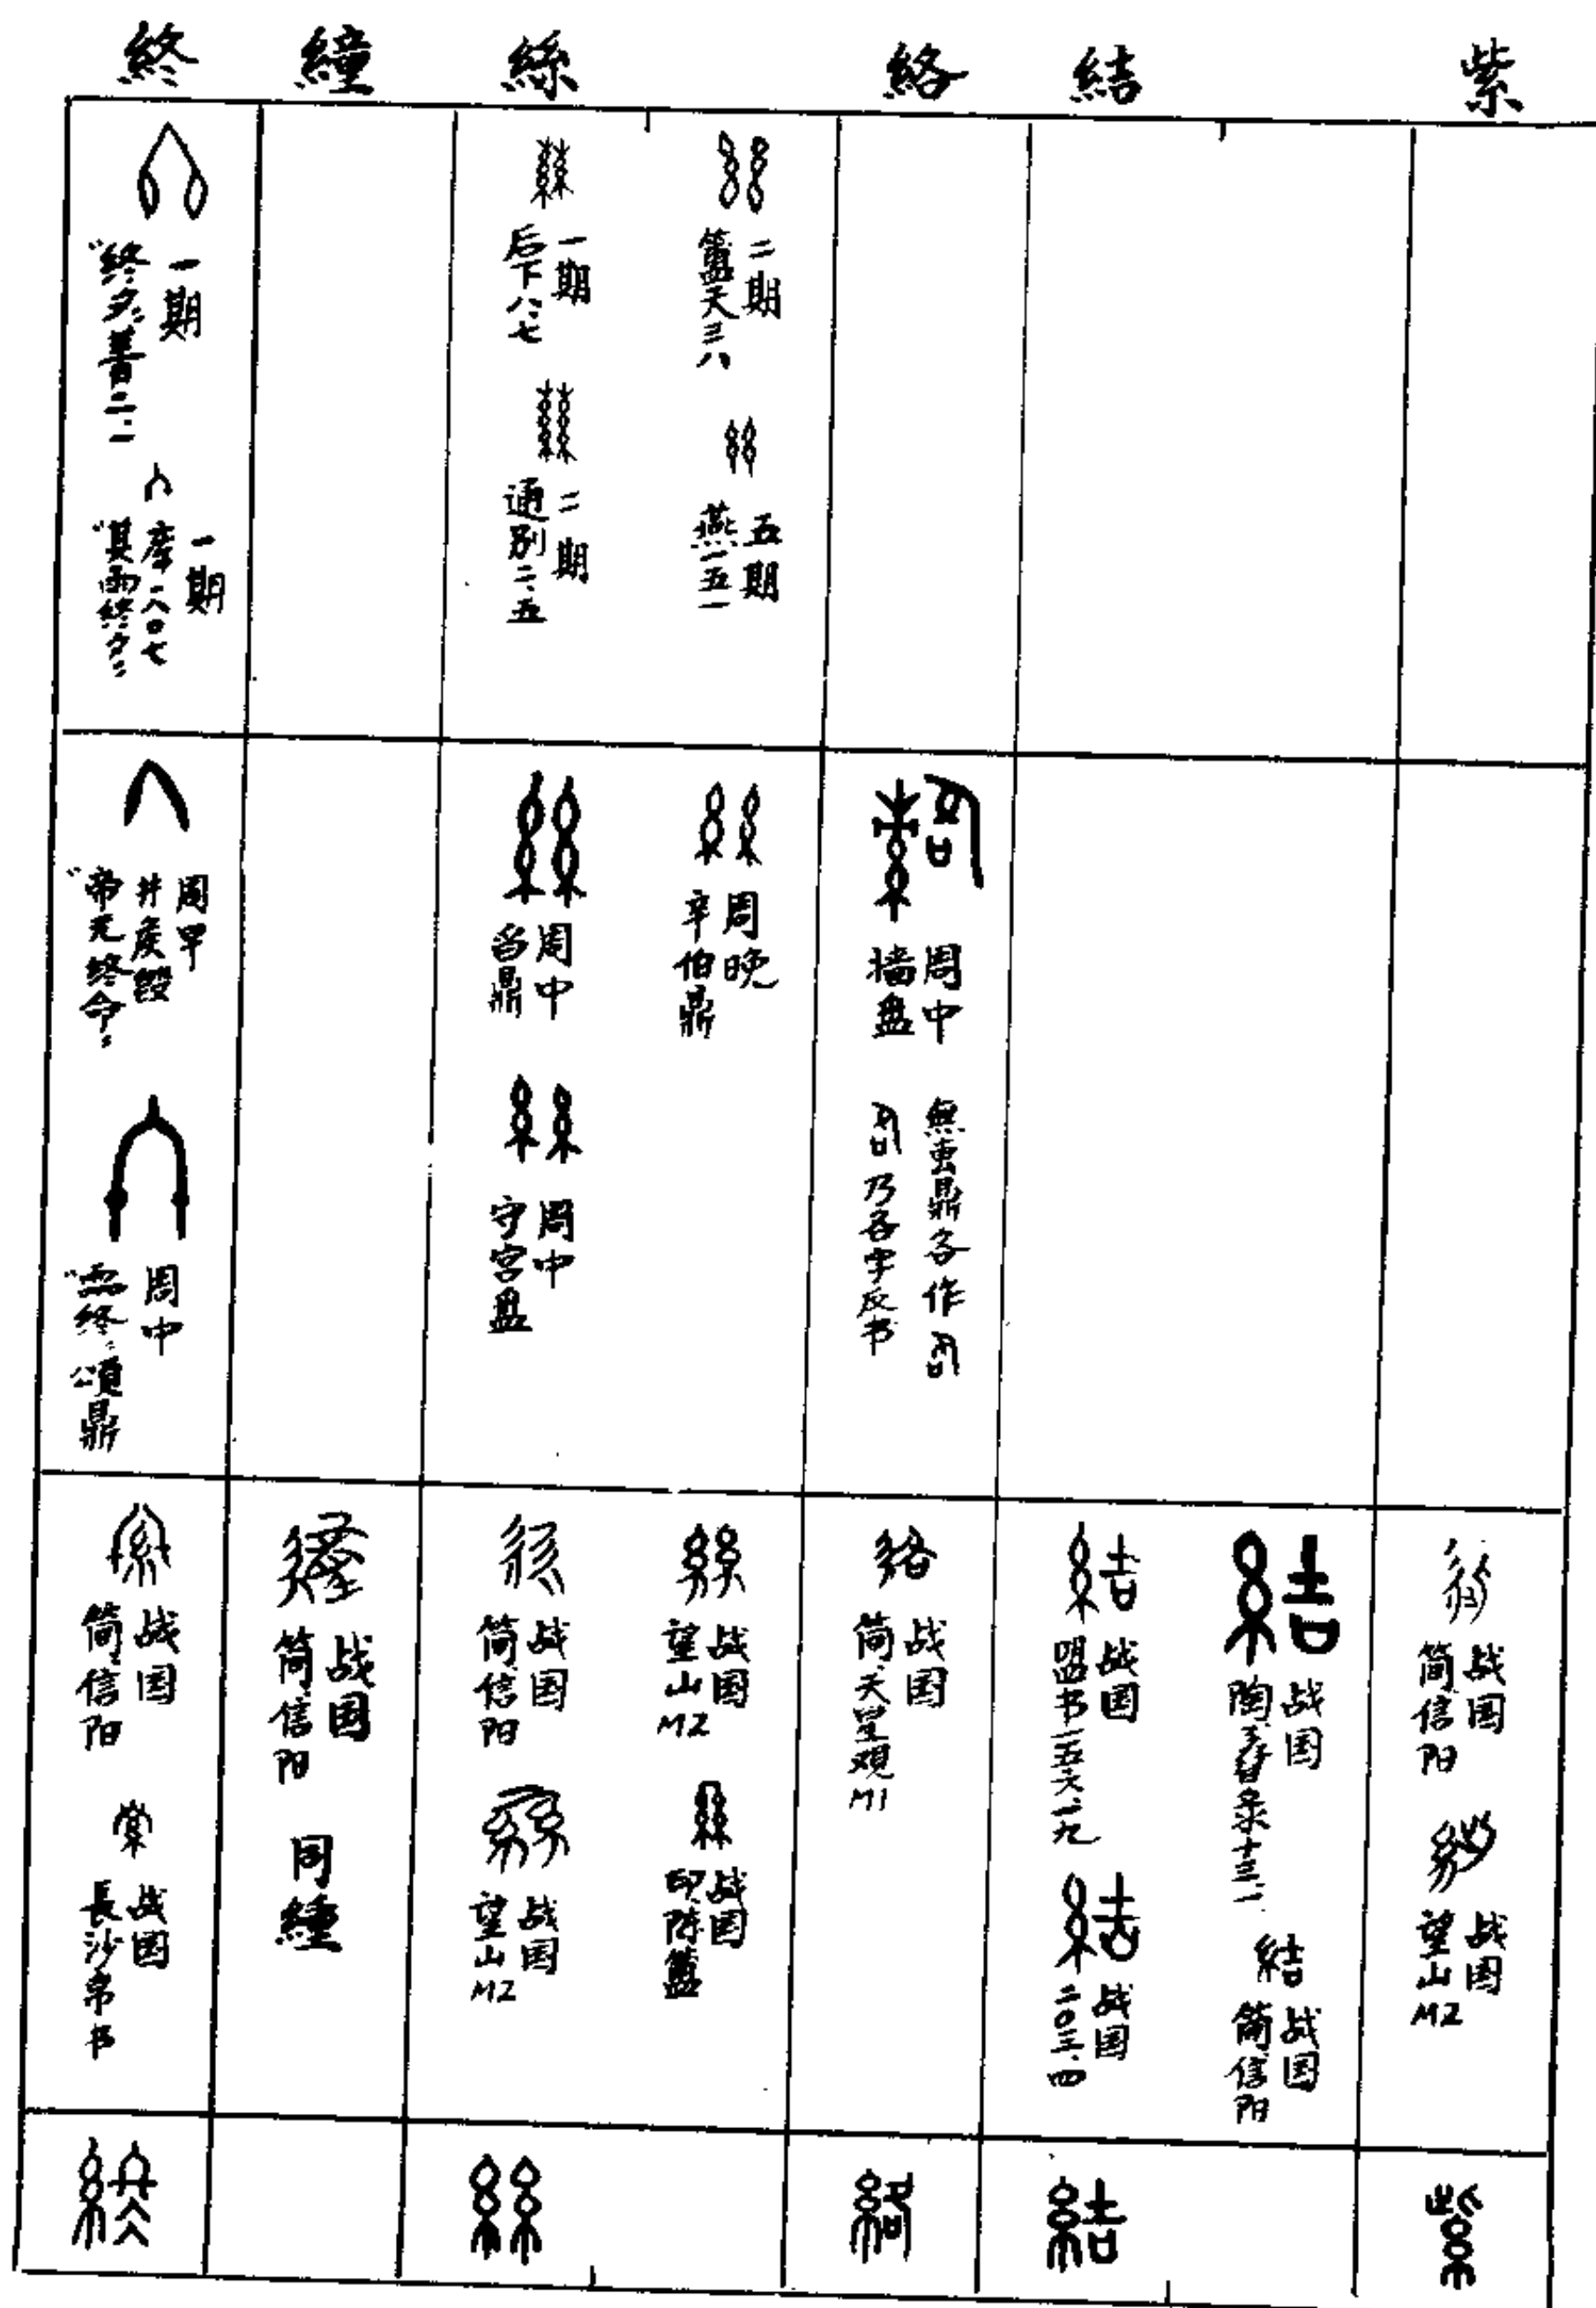 終 繵 絲 絡 結 紫
一期
"終夕" 菁二·一
一期
庫一八〇七
"其雨終夕"
一期
后下八·七
二期
通别二·五
二期
簠天三八
五期
燕一五一
周早
井侯𣪘
"帝无終命"
周中
"霝終" 頌鼎
周中
舀鼎
周中
守宫盘
周晚
辛伯鼎
周中
墙盘
無叀鼎各作
乃各字反书
战国
简信阳
战国
長沙帛书
战国
简信阳
同纏
战国
简信阳
战国
望山M2
战国
望山M2
战国
印陈簠
战国
简天星观M1
战国
盟书一五六·一九
战国
二〇三·四
战国
陶春录十三·一
战国
简信阳
战国
简信阳
战国
望山M2
終 絲 絡 結 紫